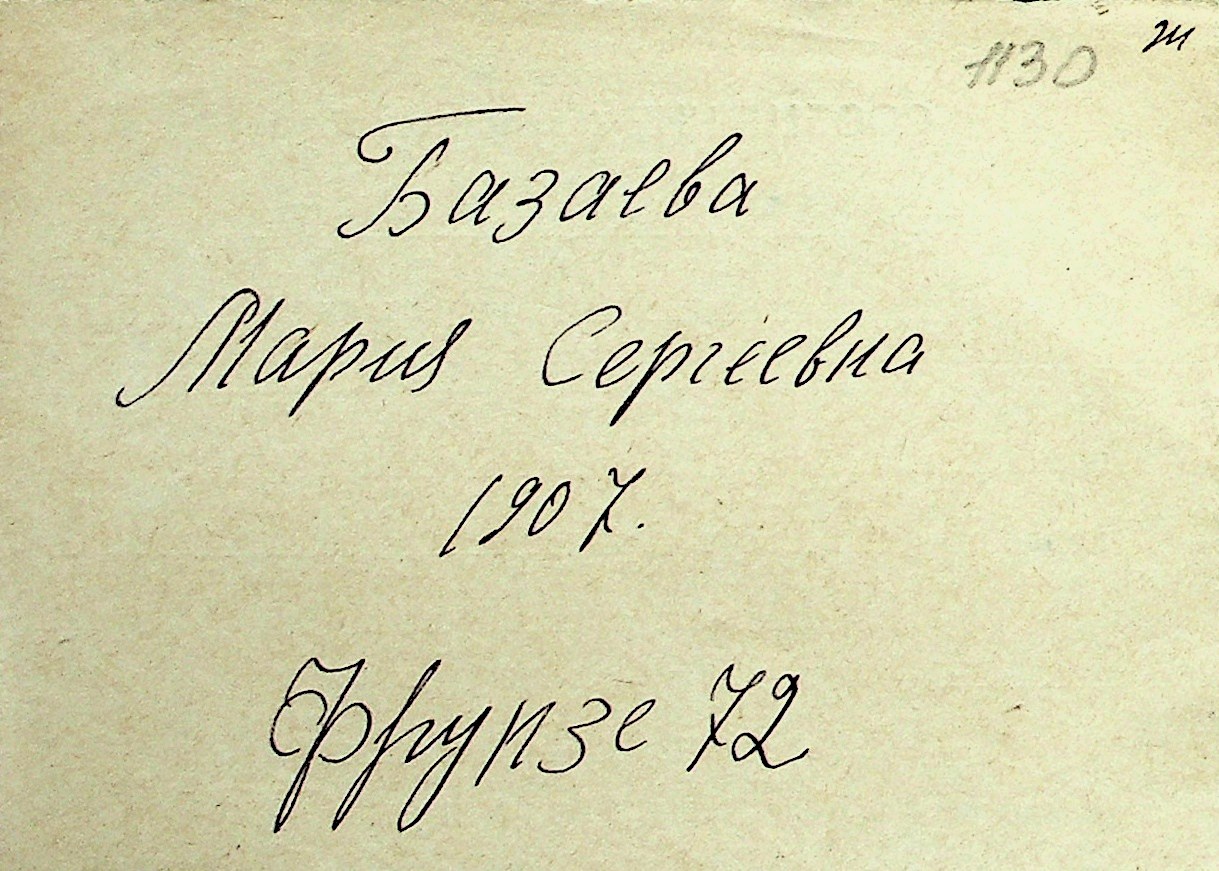 1130
Базаева
Мария Сергеевна
1907.
Фрунзе 72